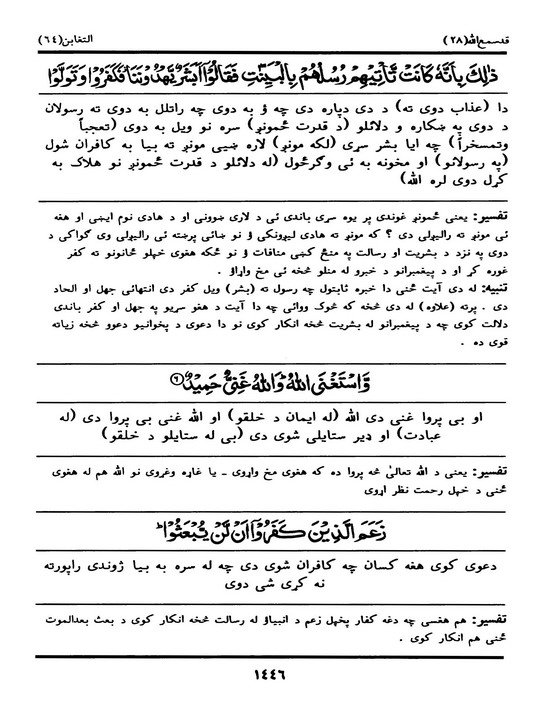 قدسمع الله (۲۸)
التغابن (٦٤)
ذٰلِكَ بِاَنَّهٗ كَانَتْ تَّاْتِيْهِمْ رُسُلُهُمْ بِالْبَيِّنٰتِ فَقَالُوْٓا اَبَشَرٌ يَّهْدُوْنَنَا فَكَفَرُوْا وَتَوَلَّوْا
دا (عذاب دوی ته) د دی دپاره دی چه ؤ به دوی چه راتلل به دوی ته رسولان
د دوی په ښکاره و دلائلو (د قدرت ځمونږ) سره نو ویل به دوی (تعجباً
وتمسخراً) چه ایا بشر سړی (لکه مونږ) لاره ښیی مونږ ته بیا به کافران شول
(په رسولانو) او مخونه به ئی وګرځول (له دلائلو د قدرت ځمونږ نو هلاک به
کړل دوی لره الله)
تفسیر: یعنی ځمونږ غوندی پر یوه سړی باندی ئی د لاری ښوونی او د هادی نوم ایښی او هغه
ئی مونږ ته رالیږلی دی ؟ که مونږ ته هادی لیږونکی ؤ نو ښائی پرښته ئی رالیږلی وی ګواکی د
دوی په نزد د بشریت او رسالت په منځ کښی منافات ؤ نو ځکه هغوی خپلو ځانونو ته کفر
غوره کړ او د پیغمبرانو د خبرو له منلو څخه ئی مخ واړاؤ .
تنبیه: له دی آیت ځنی دا خبره ثابتول چه رسول ته (بشر) ویل کفر دی انتهائی جهل او الحاد
دی . پرته (علاوه) له دی څخه که څوک ووائی چه دا آیت د هغو سړیو په جهل او کفر باندی
دلالت کوی چه د پیغمبرانو له بشریت څخه انکار کوی نو دا دعوی د پخوانیو دعوو څخه زیاته
قوی ده .
وَّاسْتَغْنَى اللّٰهُ وَاللّٰهُ غَنِيٌّ حَمِيْدٌ ۝٦
او بی پروا غنی دی الله (له ایمان د خلقو) او الله غنی بی پروا دی (له
عبادت) او ډیر ستایلی شوی دی (بی له ستایلو د خلقو)
تفسیر: یعنی د الله تعالیٰ څه پروا ده که هغوی مخ واړوی ـ یا غاړه وغړوی نو الله هم له هغوی
ځنی د خپل رحمت نظر اړوی
زَعَمَ الَّذِيْنَ كَفَرُوْٓا اَنْ لَّنْ يُّبْعَثُوْاؕ
دعوی کوی هغه کسان چه کافران شوی دی چه له سره به بیا ژوندی راپورته
نه کړی شی دوی
تفسیر: هم هغسی چه دغه کفار پخپل زعم د انبیاؤ له رسالت څخه انکار کوی د بعث بعدالموت
ځنی هم انکار کوی .
١٤٤٦